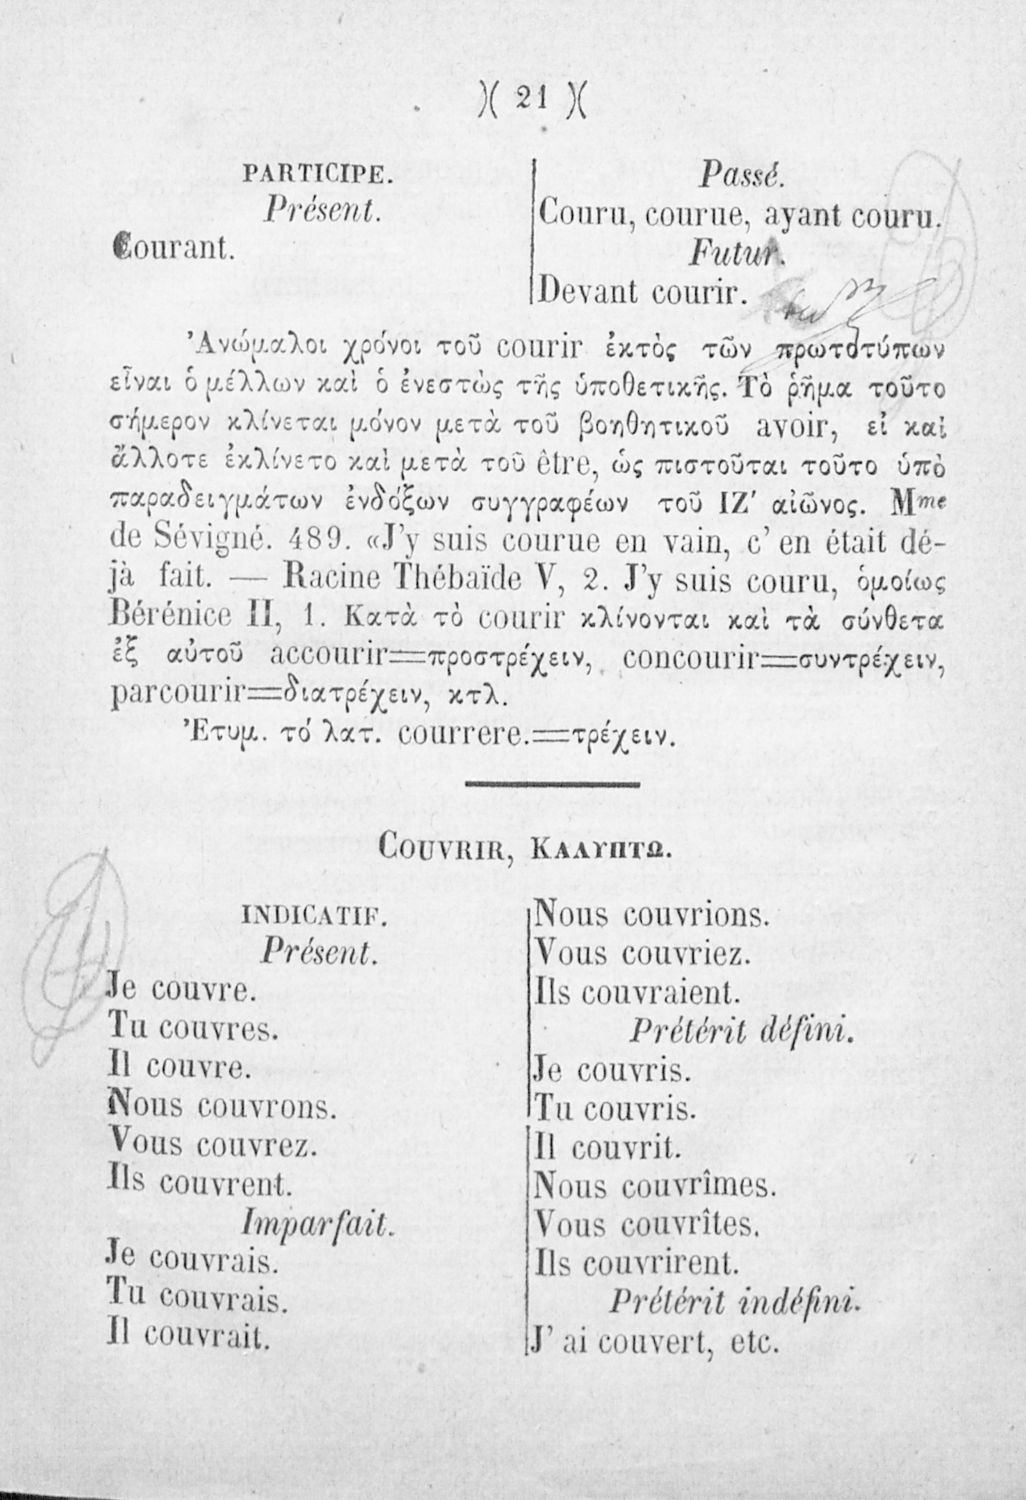 )( 21 )(
PARTICIPE.
Présent.
Courant.
Passé.
Couru, courue, ayant couru.
Futur.
Devant courir.
Ἀνώμαλοι χρόνοι τοῦ courir ἐκτὸς τῶν πρωτοτύπων
εἶναι ὁ μέλλων καὶ ὁ ἐνεστὼς τῆς ὑποθετικῆς. Τὸ ῥῆμα τοῦτο
σήμερον κλίνεται μόνον μετὰ τοῦ βοηθητικοῦ avoir, εἰ καὶ
ἄλλοτε ἐκλίνετο καὶ μετὰ τοῦ être, ὡς πιστοῦται τοῦτο ὑπὸ
παραδειγμάτων ἐνδόξων συγγραφέων τοῦ ΙΖ′ αἰῶνος. Mme
de Sévigné. 489. «J'y suis courue en vain, c' en était dé-
jà fait. — Racine Thébaïde V, 2. J'y suis couru, ὁμοίως
Bérénice II, 1. Κατὰ τὸ courir κλίνονται καὶ τὰ σύνθετα
ἐξ αὐτοῦ accourir=προστρέχειν, concourir=συντρέχειν,
parcourir=διατρέχειν, κτλ.
Ἐτυμ. τό λατ. courrere.=τρέχειν.
COUVRIR, ΚΑΛΥΠΤΩ.
INDICATIF.
Présent.
Je couvre.
Tu couvres.
Il couvre.
Nous couvrons.
Vous couvrez.
Ils couvrent.
Imparfait.
Je couvrais.
Tu couvrais.
Il couvrait.
Nous couvrions.
Vous couvriez.
Ils couvraient.
Prétérit défini.
Je couvris.
Tu couvris.
Il couvrit.
Nous couvrîmes.
Vous couvrîtes.
Ils couvrirent.
Prétérit indéfini.
J' ai couvert, etc.